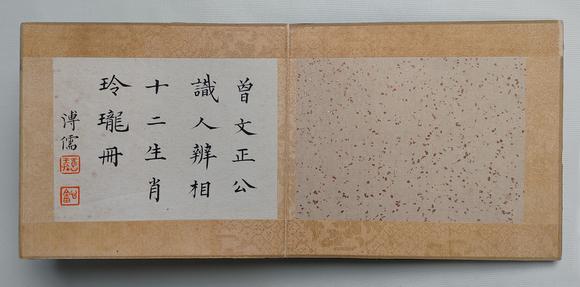 曾文正公
識人辨相
十二生肖
玲瓏冊
溥儒